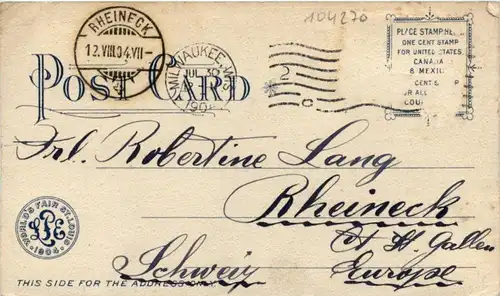 104270
RHEINECK
12.VIII.04.VII-
MILWAUKEE, WIS.
JUL 30
190
2
PLACE STAMP HE
ONE CENT STAMP
FOR UNITED STATES
CANADA
& MEXIC
CENTS
OR ALL
COU
POST CARD
Frl. Robertine Lang
Rheineck
Ct St. Gallen
Schweiz Europe
WORLD'S FAIR ST. LOUIS
1904
THIS SIDE FOR THE ADDRESS ONLY.